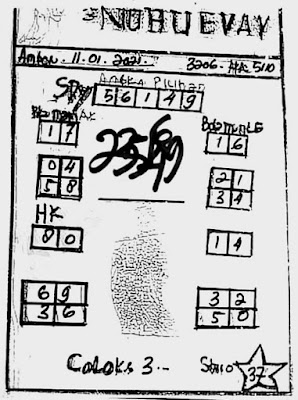 NUHUEVAY
Ambon. 11-01-2021. 3206. HK 5110
Angka Pilihan
SDY 5 6 1 4 9
1 7
1 6
0 4
5 8
2 1
3 4
HK
8 0
1 4
6 9
3 6
3 2
5 0
Coloks 3.-
37